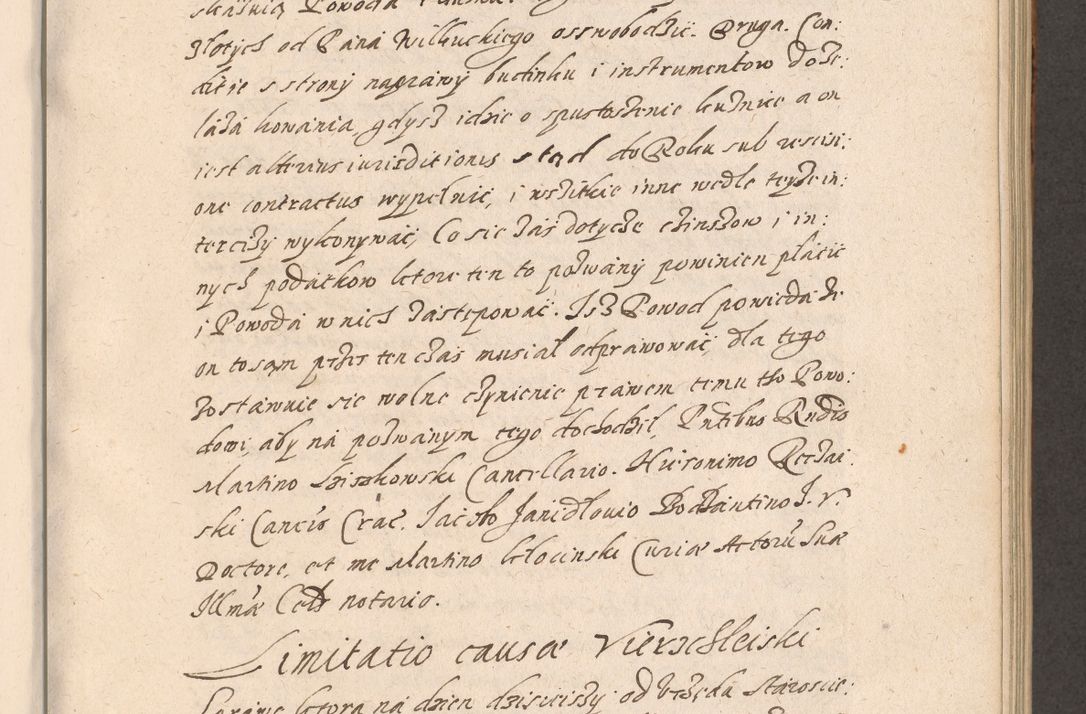 Powoda
złotych od Pana Wilkuckiego osswobodzić. Druga. Con:
ditie s strony naprawy budinku i instrumentow do że:
laza kowania, gdysz idzie o spustoszenie kuźnice a on
iest alterius iurisditionis stąd do Roku sub rescisi:
one contractus wypełnić, i wszitkie inne wedle teyże in:
tercizy wykonywać, Co sie zaś dotycze czinszow i in:
nych podatkow ktore ten to pozwany powinien płacic
i Powoda w nich zastępować. Isz Powod powieda że
on to sąm przes ten czas musiał odprawować, dla tego
zostawuie sie wolne czynienie prawem temu tto Powo:
dowi, aby na pozwanym tego dochodził, Pntibus Rndis
Martino Cancellario. Hieronimo
ski Canco Crac. Jacobo Janidlovio Bodzantino J. V.
Doctore, et me Martino Głocinski Curiæ Actorũ Suæ
Illmæ Cels notario.
Limitatio causæ Vierschleiski
ktora na dzien dzisieiszy od StarosCie: